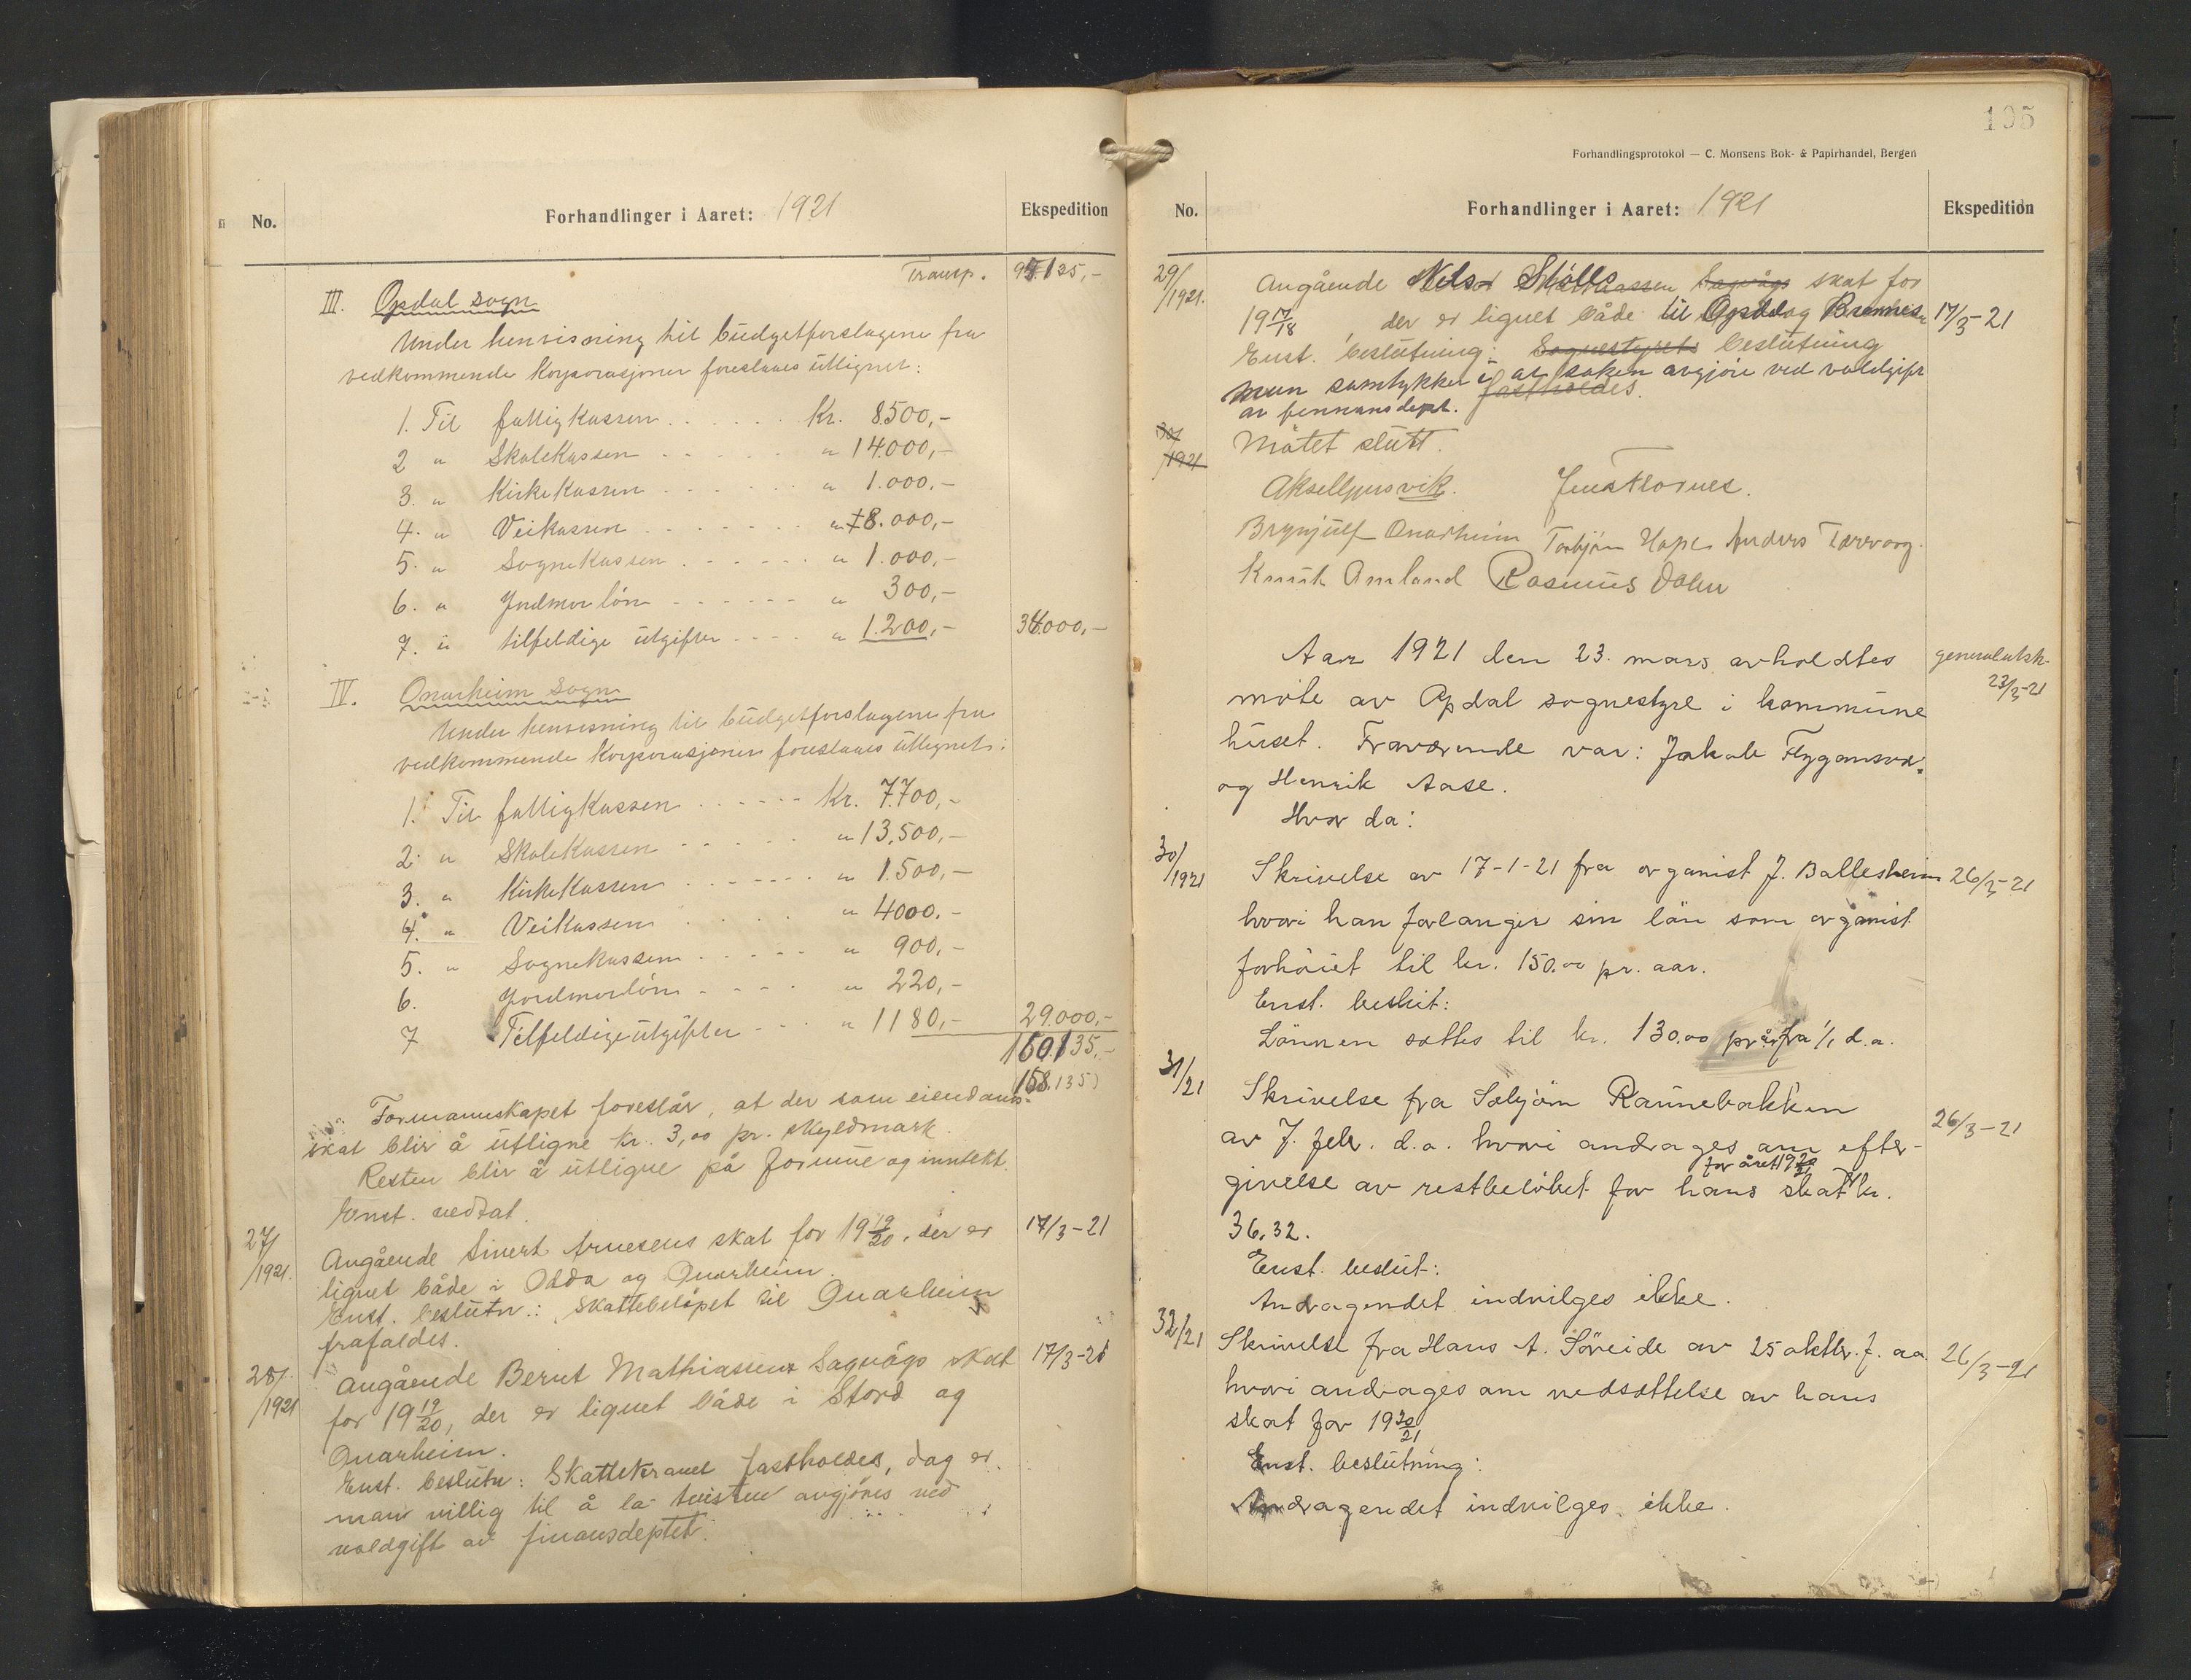 No.
Forhandlinger i Aaret: 1921
Ekspedition
Transp. 95.135,-
III. Opdal sogn
Under henvisning til budgetforslagene fra
vedkommende Korporasjoner foreslaaes utlignet:
1. Til fattigkassen . . . . . . Kr. 8500,-
2 " Skolekassen . . . . . " 14.000,-
3. " Kirkekassen . . . . . . " 1.000.-
4. " Veikassen . . . . . . . " 8.000,-
5. " Sognekassen . . . . . . " 1.000,-
6. " Jordmorløn . . . . . . " 300,-
7. " tilfeldige utgifter . . . . " 1.200,-
34.000,-
IV. Onarheim Sogn
Under henvisning til budgetforslagene fra
vedkommende Korporasjoner foreslaaes utlignet:
1. Til fattigkassen . . . . . . Kr. 7.700,-
2. " Skolekassen . . . . . " 13.500,-
3. " Kirkekassen . . . . . . . " 1.500,-
4. " Veikassen . . . . " 4000.-
5. " Sognekassen . . . . . " 900,-
6. Jordmorløn . . . . " 220,-
7 Tilfeldige utgifter . . . " 1180,-
29.000,-
158.135
Formannskapet foreslår, at der som eiendoms-
skat blir å utligne kr. 3,00 pr. skyldmark.
Resten blir å utligne på formue og inntekt.
Enst. vedtat.
27/1921. Angående Sivert Arnesens skat for 19 19/20, der er 17/3-21
lignet både i Odda og Onarheim.
Enst. beslutn.: Skattebeløpet til Onarheim
frafaldes.
28/1921 Angående Bernt Mathiassens Sagvågs skat 17/3-21
for 19 19/20, der er lignet både i Stord og
Onarheim.
Enst. beslutn: Skattekravet fastholdes, dog er
man villig til å la tvisten avgjöres ved
voldgift av finansdeptet.
105
Forhandlingsprotokol — C. Monsens Bok- & Papirhandel, Bergen
No.
Forhandlinger i Aaret: 1921
Ekspedition
29/1921. Angående Nels Sagvågs skat for
19 17/18, der er lignet både til Opdal og Bremnes 17/3-21
Enst. beslutning: Sognestyrets beslutning
fastholdes.
man samtykker i at saken avgjöre ved voldgift
av finnansdept.
30/1921 Mötet slutt.
Aksel Lunsvik. Jens Flornes.
Brynjulf Onarheim Torbjørn Hope Anders Tærvaag.
Knut Omland Rasmus Dalen
Aar 1921 den 23. mars avholdtes
møte av Opdal sognestyre i kommune
huset. Fraværende var: Jakob Flygansvær
og Henrik Aase.
generalutsk.
23/3-21
Hvor da:
30/1921 Skrivelse av 17-1-21 fra organist J. Ballesheim 26/3-21
hvori han forlanger sin løn som organist
forhøiet til kr. 150.00 pr. aar.
Enst. beslut:
Lönnen sættes til kr. 130.00 pr år fra 1/1 d.a.
31/21 Skrivelse fra Sæbjörn Raunebakken
av 7. febr. d.a. hvori andrages om efter- 26/3-21
givelse av restbelöbet for hans skat for året 1920/21 kr.
36,32.
Enst. beslut:
Andragendet indvilges ikke.
32/21 Skrivelse fra Hans A. Söreide av 25 oktbr. f. aa. 26/3-21
hvori andrages om nedsættelse av hans
skat for 19 20/21
Enst. beslutning:
Andragendet indvilges ikke.